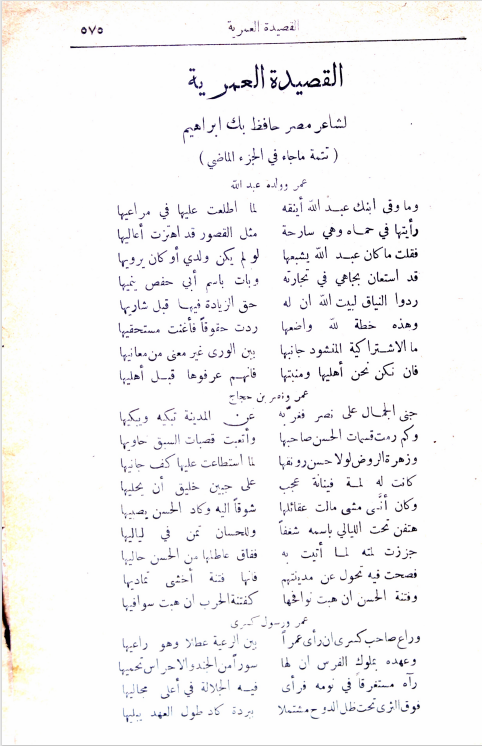 القصيدة العمرية
٥٧٥
القصيدة العمرية
لشاعر مصر حافظ بك ابراهيم
( تتمة ماجاء في الجزء الماضي )
عمر وولده عبد الله
وما وقى ابنك عبد الله أينقه لما اطلعت عليها في مراعيها
رأيتها في حماه وهي سارحة مثل القصور قد اهتزت أعاليها
فقلت ماكان عبد الله يشبعها لو لم يكن ولدي أو كان يرويها
قد استعان بجاهي في تجارته وبات باسم أبي حفص ينميها
ردوا النياق لبيت الله ان له حق الزيادة فيها قبل شاريها
وهذه خطة لله واضعها ردت حقوقاً فأغنت مستحقيها
ما الاشتراكية المنشود جانبها بين الورى غير معنى من معانيها
فان نكن نحن أهليها ومنبتها فانهم عرفوها قبل أهليها
عمر ونصر بن حجاج
جنى الجمال على نصر فغربه عن المدينة تبكيه ويبكيها
وكم رمت قسمات الحسن صاحبها وأتعبت قصبات السبق حاويها
وزهرة الروض لولا حسن رونقها لما استطاعت عليها كف جانيها
كانت له لمة فينانة عجب على جبين خليق أن يحليها
وكان أنى مشى مالت عقائلها شوقاً اليه وكاد الحسن يصبيها
هتفن تحت الليالي باسمه شغفاً وللحسان تمن في لياليها
جززت لمته لما أتيت به ففاق عاطلها من الحسن حاليها
فصحت فيه تحول عن مدينتهم فانها فتنة أخشى تماديها
وفتنة الحسن ان هبت نوافحها كفتنة الحرب ان هبت سوافيها
عمر ورسول كسرى
وراع صاحب كسرى ان رأى عمراً بين الرعية عطلا وهو راعيها
وعهده بملوك الفرس ان لها سوراً من الجند والاحراس تحميها
رآه مستغرقاً في نومه فرأى فيه الجلالة في أعلى مجاليها
فوق الثرى تحت ظل الدوح مشتملا ببردة كاد طول العهد يبليها